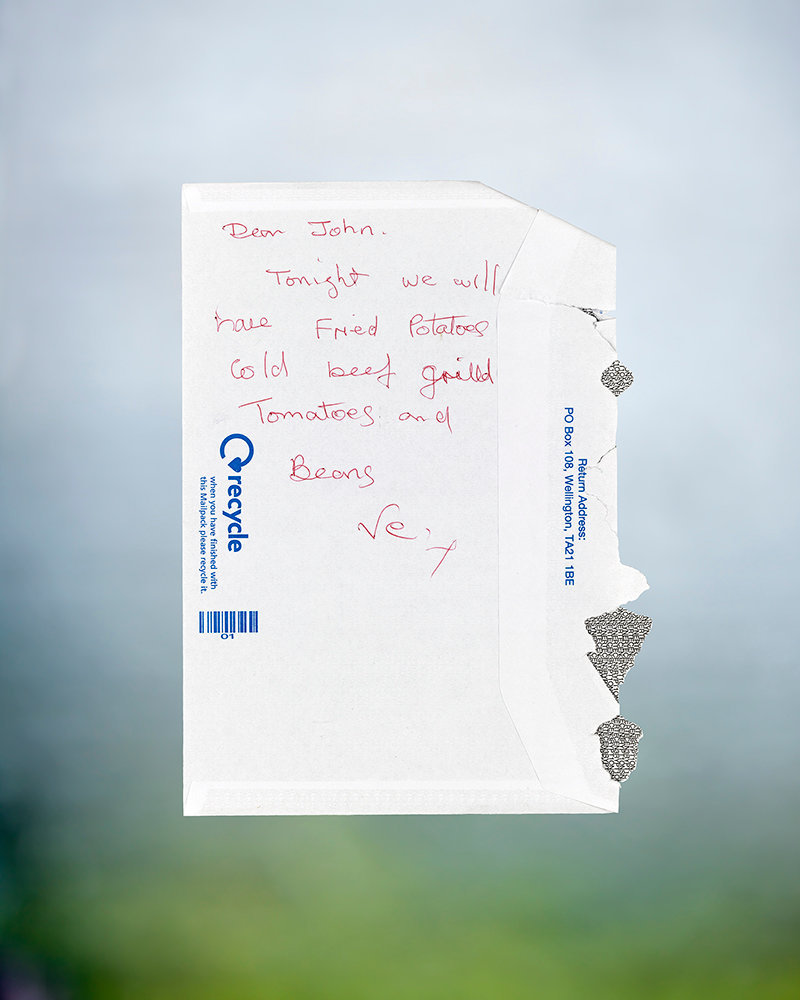 Dear John.
Tonight we will
have Fried Potatoes
Cold beef grilld
Tomatoes and
Beans
Ve. x
recycle
when you have finished with
this Mailpack please recycle it.
01
Return Address:
PO Box 108, Wellington, TA21 1BE